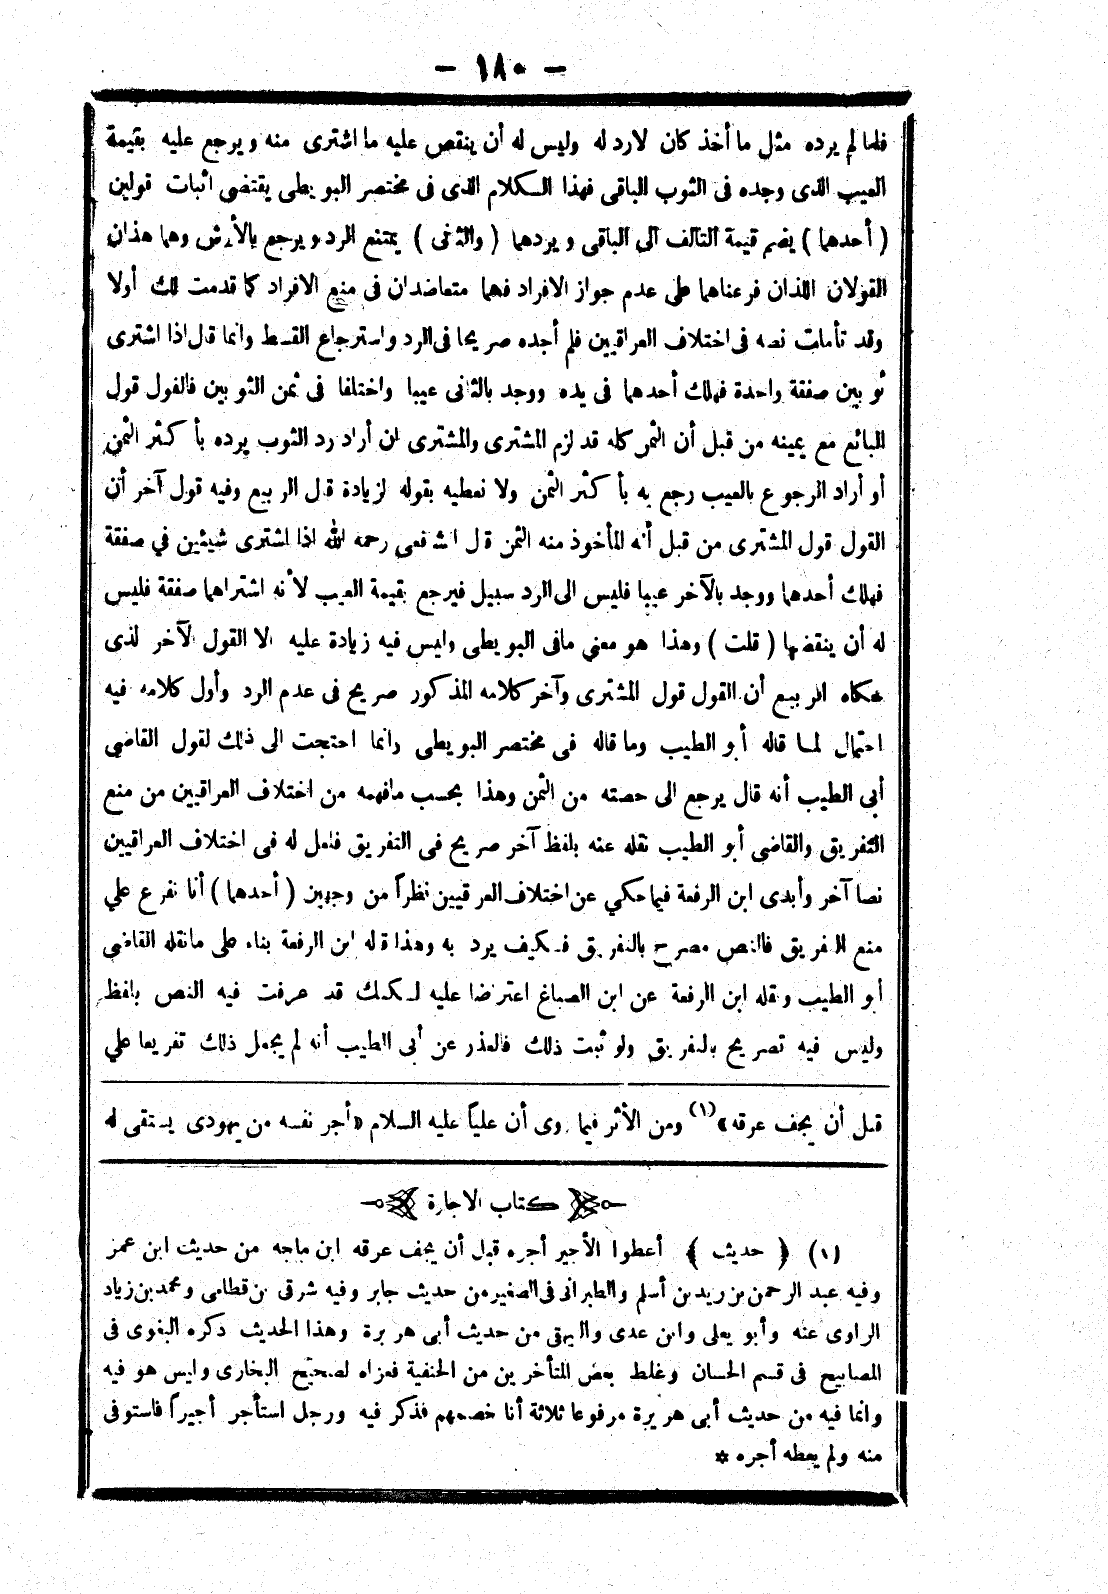 - ١٨٠ -
فلما لم يرده مثل ما أخذ كان لارد له وليس له أن ينقص عليه ما اشترى منه ويرجع عليه بقيمة
العيب الذى وجده فى الثوب الباقى فهذا الكلام الذى فى مختصر البويطى يقتضى اثبات قولين
( أحدهما ) يضم قيمة التالف الى الباقى ويردهما ( والثانى ) يمتنع الرد ويرجع بالأرش وهما هذان
القولان اللذان فرعناهما على عدم جواز الافراد فهما متعاضدان فى منع الافراد كما قدمت لك أولا
وقد تأملت نصه فى اختلاف العراقيين فلم أجده صريحا فى الرد واسترجاع القسط وانما قال اذا اشترى
ثوبين صفقة واحدة فهلك أحدهما فى يده ووجد بالثانى عيبا واختلفا فى ثمن الثوبين فالقول قول
البائع مع يمينه من قبل أن الثمن كله قد لزم المشترى والمشترى ان أراد رد الثوب يرده بأكثر الثمن
أو أراد الرجوع بالعيب رجع به بأكثر الثمن ولا نعطيه بقوله لزيادة قال الربيع وفيه قول آخر أن
القول قول المشترى من قبل أنه المأخوذ منه الثمن قال الشافعى رحمه الله اذا اشترى شيئين في صفقة
فهلك أحدهما ووجد بالآخر عيبا فليس الى الرد سبيل فيرجع بقيمة العيب لأنه اشتراهما صفقة فليس
له أن ينقضها ( قلت ) وهذا هو معني مافى البويطى وليس فيه زيادة عليه الا القول الآخر الذى
حكاه الربيع أن القول قول المشترى وآخر كلامه المذكور صريح فى عدم الرد وأول كلامه فيه
احتمال لما قاله أبو الطيب وما قاله فى مختصر البويطى وانما احتجت الى ذلك لقول القاضي
أبي الطيب أنه قال يرجع الى حصته من الثمن وهذا بحسب مافهمه من اختلاف العراقيين من منع
التفريق والقاضى أبو الطيب نقله عنه بلفظ آخر صريح فى التفريق فلعل له فى اختلاف العراقيين
نصا آخر وأبدى ابن الرفعة فيما حكي عن اختلاف العرقيين نظراً من وجهين ( أحدهما ) أنا نفرع علي
منع التفريق فالنص مصرح بالتفريق فكيف يرد به وهذا قاله ابن الرفعة بناء على مانقله القاضى
أبو الطيب ونقله ابن الرفعة عن ابن الصباغ اعترضا عليه لكنك قد عرفت فيه النص بلفظه
وليس فيه تصريح بالتفريق ولو ثبت ذلك فالعذر عن أبى الطيب أنه لم يجعل ذلك تفريعا علي
قبل أن يجف عرقه» (١) ومن الأثر فيما روى أن علياً عليه السلام «أجر نفسه من يهودى يستقى له
كتاب الاجارة
(١) ﴿ حديث ﴾ أعطوا الأجير أجره قبل أن يجف عرقه ابن ماجه من حديث ابن عمر
وفيه عبد الرحمن بن زيد بن أسلم والطبرانى فى الصغير من حديث جابر وفيه شرقى بن قطامى ومحمد بن زياد
الراوى عنه وأبو يعلى وابن عدى والبيهقى من حديث أبى هريرة وهذا الحديث ذكره البغوى فى
المصابيح فى قسم الحسان وغلط بعض المتأخرين من الحنفية فعزاه لصحيح البخارى وليس هو فيه
وانما فيه من حديث أبى هريرة مرفوعا ثلاثة أنا خصمهم فذكر فيه ورجل استأجر أجيراً فاستوفى
منه ولم يعطه أجره *